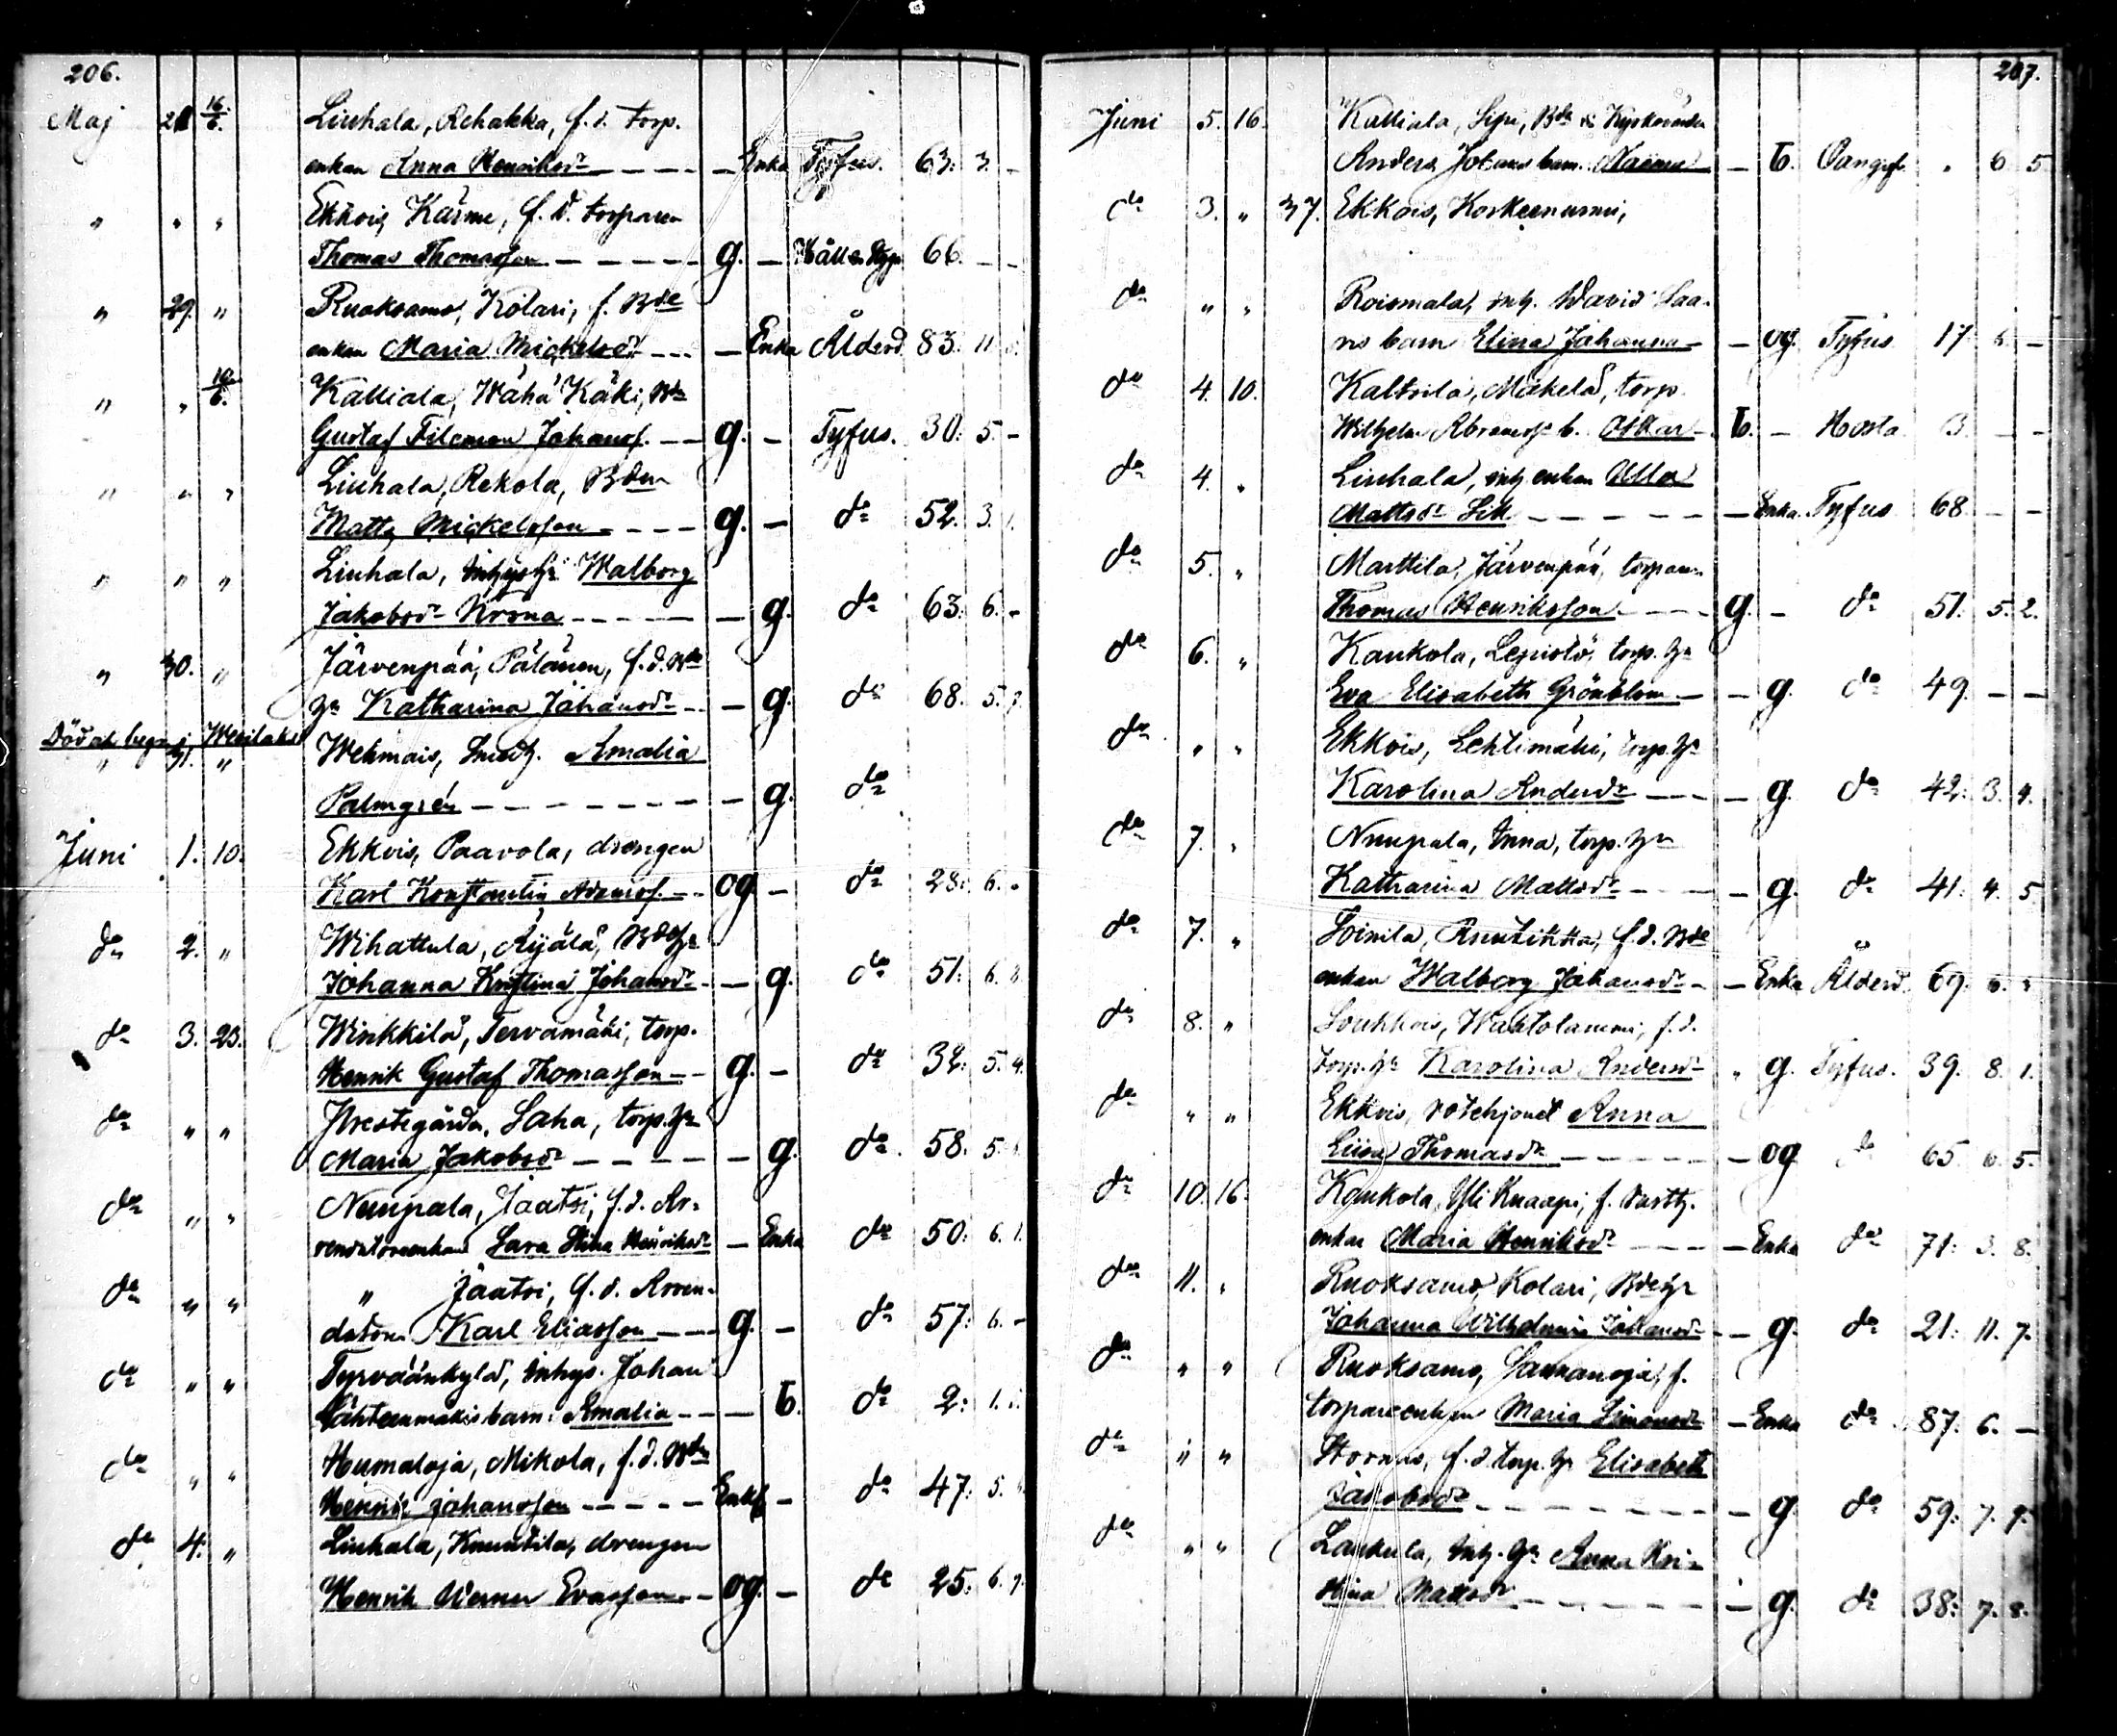 206.
Maj 28 16/6. Liuhala, Rehakka, f. d. torp.
enkan Anna Henriksdr — Enka Tyfus. 63: 3. -
" " " Ekkois, f. d. torparen
Thomas Thomasson g. - 66. - -
" 29. " Ruoksamo, Kolari, f. Bde
enkan Maria Mickelsdr — Enka Ålderd. 83: 11
" " 10/6. Kalliala, Wähä Käki, Bdn
Gustaf Filemon Johanss. g. - Tyfus. 30: 5. -
" " " Liuhala, Rekola, Bden
Matts Mickelsson g. - do 52. 3.
" " " Liuhala, Walborg
Jakobsdr Krona — g. do 63: 6. -
" 30. " Järvenpää, f. d. Bde
hu Katharina Johansdr — g. do 68. 5.
Död o. begr. i Wesilaks
" 31. " Wehmais, Amalia
Palmgrén — g. do
Juni 1. 10. Ekkois, Paavola, drängen
Karl Konstantin Adamss. og - do 28: 6.
do 2. " Wihattula, Äijälä, Bdehu
Johanna Kristina Johansdr — g. do 51: 6.
do 3. 23. Winkkilä, Tervamäki, torp.
Henrik Gustaf Thomasson g. - do 32: 5. 4.
do " " Prestegårds, Laha, torp. hu
Maria Jakobsdr — g. do 58. 5.
do " " Nuupala, Jaatsi, f. d. Ar-
rendatorsenkan Sara Stina Henriksdr — Enka do 50: 6. 1.
do " " " Jaatsi, f. d. Arren-
datorn Karl Eliasson g. - do 57: 6. -
do " " Tyrväänkylä, inhys. Johan
Lähteenmäkis barn: Amalia — b. do 2: 1.
do " " Humaloja, Mikola, f. d. Bdn
Henrik Johansson Enkl. - do 47: 5.
do 4. " Liuhala, Knuutila, drengen
Henrik Werner Evasson og. - do 25: 6.
207.
Juni 5. 16. Kalliala, Sipi, Bde
Anders Johans barn. Naima — b. " 6 5.
do 3. " 37. Ekkois, Koskeennurmi,
do " " Roismala, inh. David Saa-
ris barn Elina Johanna — og Tyfus 17: 6. -
do 4. 10. Kaltsila, Mäkelä, torp.
Wilhelm Abramss. b. Oskar b. - Hosta 3. - -
do 4. " Liuhala, inh. enkan Ulla
Mattsdr — Enka. Tyfus 68 - -
do 5. " Marttila, Järvenpää, torparen
Thomas Henriksson g. - do 51. 5. 2.
do 6. " Kaukola, torp. hu
Eva Elisabeth Grönblom — g. do 49. - -
do " " Ekkois, Lehtimäki, torp. hu
Karolina Andersdr — g. do 42: 3. 4.
do 7. " Nuupala, Inna, torp. hu
Katharina Mattsdr — g. do 41: 4. 5
do 7. " Soinila, Ruutikka, f. d. Bde
enkan Walborg Johansdr — Enka Ålderd. 69. 6.
do 8. " f. d.
torp. hu Karolina Andersdr " g. Tyfus. 39. 8. 1.
do " " Ekkois, rotehjonet Anna
Liisa Thomasdr — og do 65 6. 5.
do 10. 16. Kaukola, Yli Knaapi, f.
enkan Maria Henriksdr — Enka do 71: 3. 8.
do 11. " Ruoksamo, Kolari, Bdehu
Johanna Wilhelmina Johansdr — g. do 21: 11. 7.
do " " Ruoksamo, f.
torpareenkan Maria Simonsdr — Enka do 87: 6. -
do " " Stormis, f. d. torp. hu Elisabeth
Jakobsdr — g. do 59: 7. 9.
do " " Laukula, inh. hu Anna Kri-
stina Mattsdr — g. do 38: 7. 8.